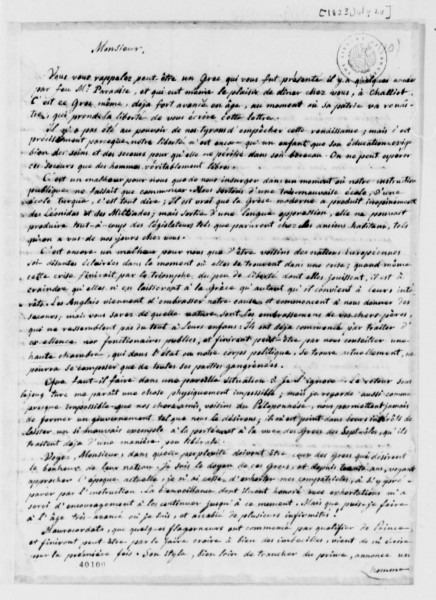 [1823 July 10]
Monsieur,
Vous vous rappelez peut-être un Grec qui vous fut présenté il y a quelques années
par feu Mr. Paradise, et qui eut même le plaisir de dîner chez vous, à Challiot.
C'est ce Grec même, déjà fort avancé en âge, au moment où sa patrie va renaî-
tre, qui prend la liberté de vous écrire cette lettre.
Il n'a pas été au pouvoir de nos tyrans d'empêcher cette renaissance; mais c'est
précisément parceque notre liberté n'est encore qu'un enfant que son éducation exige
bien des soins et des secours pour qu'elle ne périsse dans son berceau. On ne peut espérer
ces secours que des hommes véritablement libres.
C'est un malheur pour nous que de nous insurger dans un moment où notre instruction
publique ne faisait que commencer. Nous sortons d'une très-mauvaise école, d'une
école turque, c'est tout dire; Il est vrai que la Grèce moderne a produit
des Léonidas et des Miltiades; mais sortie d'une longue oppression, elle ne pouvait
produire tout-à-coup des législateurs tels que parurent chez ses anciens habitans, tels
qu'on a vu de nos jours chez vous.
C'est encore un malheur pour nous que d'être voisins des nations Européennes
éclairées dans le moment où elles se trouvent dans une crise; quand même
cette crise finirait par le triomphe du peu de liberté dont elles jouissent, il est à
craindre qu'elles n'en laisseront à la Grèce qu'autant qu'il convient à leurs inté-
rêts. Les Anglais viennent d'embrasser notre cause et commencent à nous donner des
secours; mais vous savez de quelle nature sont les embrassemens de vos chers pères,
qui ne ressemblent pas du tout à leurs enfans; Ils ont déjà commencé par traiter
d'excellence nos fonctionnaires publics, et finiront peut-être par nous conseiller une
haute chambre, qui dans l'état où notre corps politique se trouve actuellement, ne
pourra se composer que de toutes ses parties gangrénées.
Que faut-il faire dans une pareille situation? je l'ignore. Le retour sous
le joug turc me paraît une chose physiquement impossible; mais je regarde aussi comme
presque impossible que nos chers amis, voisins du Péloponnèse, nous permettent jamais
de former un gouvernement tel que nous le désirons; il n'est point dans leurs intérêts de
laisser un si mauvais exemple à la portée et à la vue des Grecs des Sept-îles, qu'ils
traitent déjà d'une manière peu libérale.
Voyez, Monsieur, dans quelle perplexité doivent être ceux des Grecs qui désirent
le bonheur de leur nation. Je suis le doyen de ces Grecs, et depuis trente ans, voyant
approcher l'époque actuelle, je n'ai cessé d'exhorter mes compatriotes, à s'y pré-
parer par l'instruction. La bienveillance dont ils ont honoré mes exhortations m'a
servi d'encouragement à les continuer jusqu'à ce moment. Mais que puis-je faire
à l'âge très avancé où je suis, et accablé de plusieurs infirmités!
Maurocordato, que quelques flagorneurs ont commencé par qualifier de Prince
et finiront peut être par le faire croire à bien des imbécilles, vient de m'écrire
pour la première fois. Son style, bien loin de trancher du prince, annonce un
homme
40160